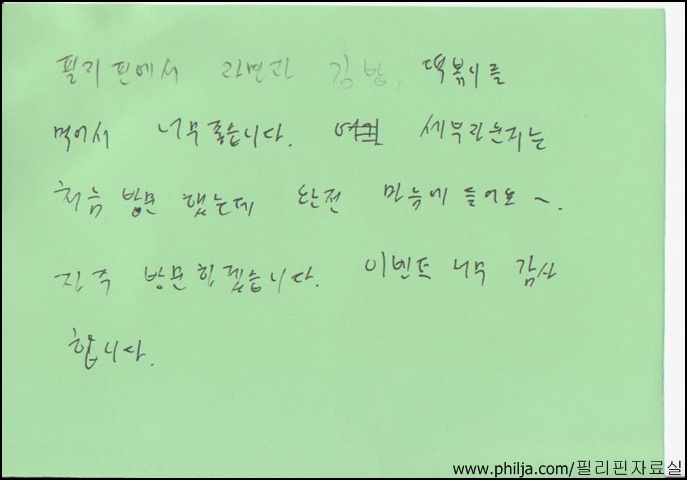 필리핀에서 라면과 김밥, 떡볶이를
먹어서 너무 좋습니다. 세부라운지는
처음 방문 했는데 완전 마음에 들어요~.
자주 방문 하겠습니다. 이벤트 너무 감사
합니다.
www.philja.com/필리핀자료실